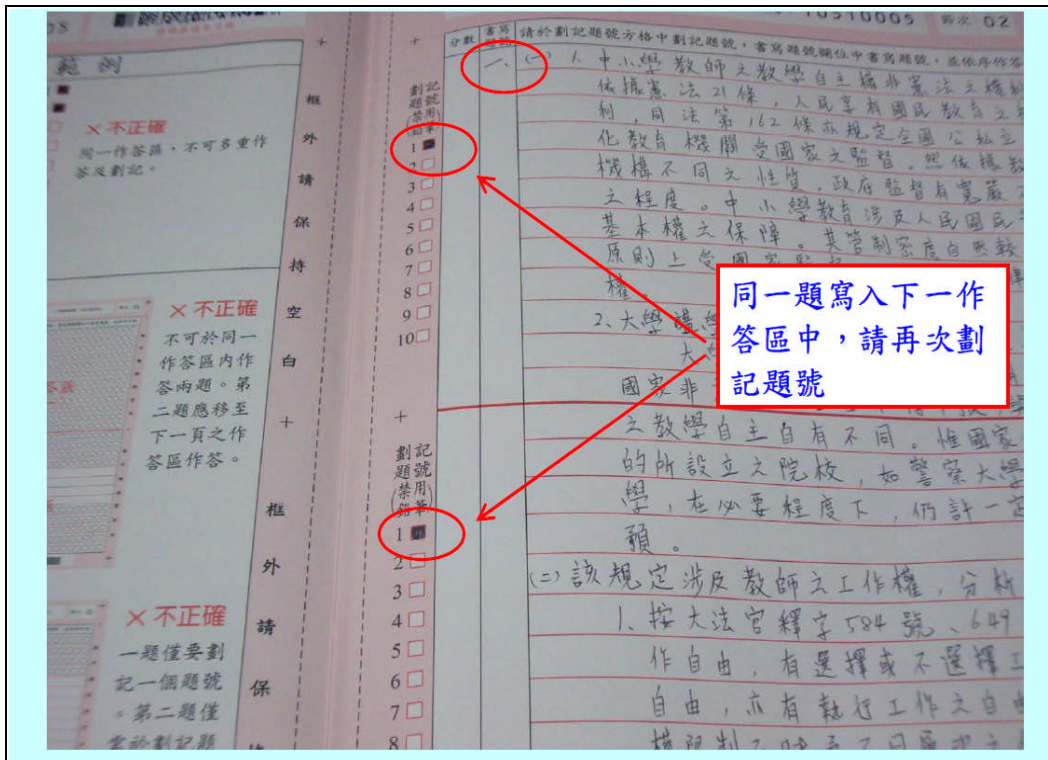 10510005 卷次 02
範例
✕不正確
同一作答區,不可多重作
答及劃記。
✕不正確
不可於同一
作答區內作
答兩題。第
二題應移至
下一頁之作
答區作答。
✕不正確
一題僅要劃
記一個題號
。第二題僅
框外請保持空白
框外請保
劃記題號
(禁用鉛筆)
1
2
3
4
5
6
7
8
9
10
劃記題號
(禁用鉛筆)
1
2
3
4
5
6
7
8
分數 書寫題號 請於劃記題號方格中劃記題號,書寫題號欄位中書寫題號,並依序作答
一、 (一) 1. 中小學教師之教學自主權非憲法之權利
依據憲法21條,人民享有國民教育之權
利,同法第162條亦規定全國公私立
化教育機關受國家之監督。然依據教
機構不同之性質,政府監督有寬嚴
之程度。中小學教育涉及人民國民
基本權之保障。其管制密度自然較
原則上受國家
權。
2、大學
大
國家非
之教學自主自有不同。惟國家
的所設立之院校,如警察大學
學,在必要程度下,仍許一定
預。
(二)該規定涉及教師之工作權,分析
1、按大法官釋字584號、649
作自由,有選擇或不選擇工
自由,亦有執行工作之自由
同一題寫入下一作
答區中,請再次劃
記題號